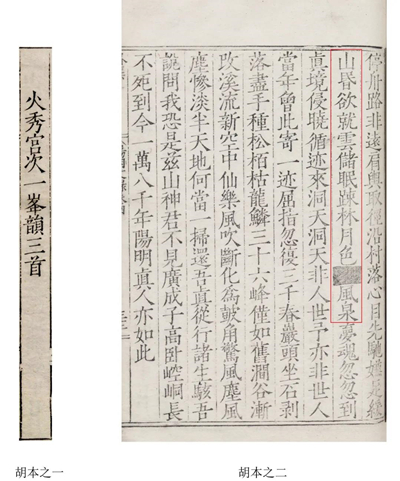 火秀宮次一峯韻三首
胡本之一
停舟路非遠肩輿取徑沿村落心目先馳嫌足緩
山昏欲就雲儲眠踈林月色風泉夢魂忽忽到
真境侵曉循迹來洞天洞天非人世予亦非世人
當年曾此寄一迹屈指忽復三千春巖頭坐石剥
落盡手種松栢枯龍鱗三十六峰僅如舊澗谷漸
改溪流新空中仙樂風吹斷化為鼓角驚風塵風
塵慘淡半天地何當一掃還吾真從行諸生駭吾
說問我恐是兹山神君不見廣成子高卧崆峒長
不死到今一萬八千年陽明真人亦如此
胡本之二